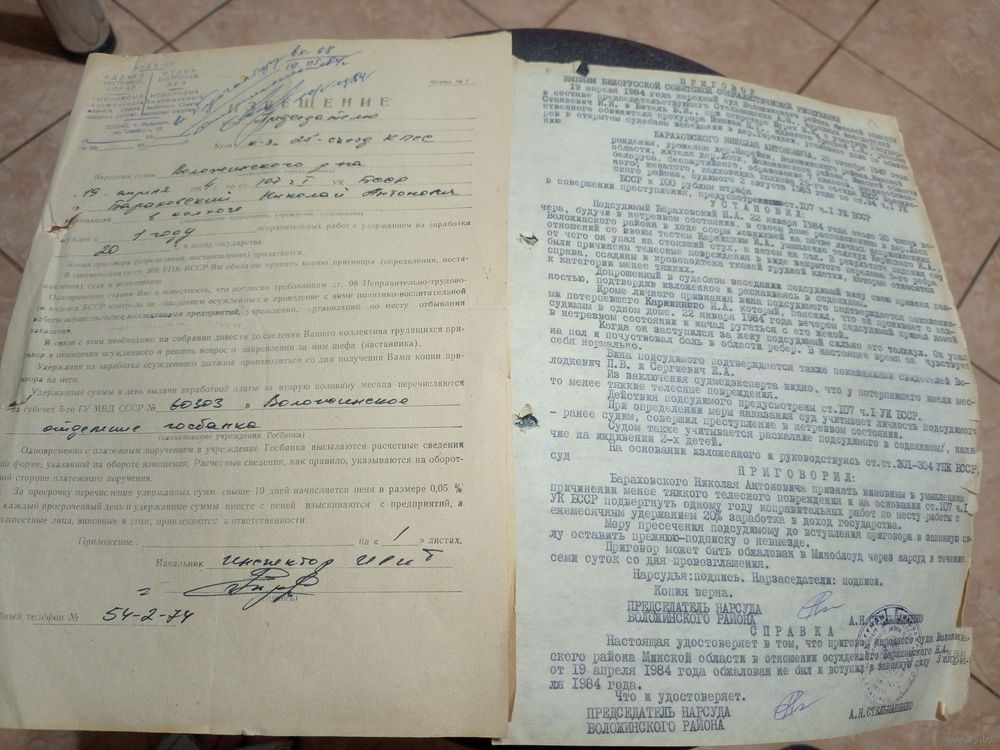 Форма № 1
вх 68
ИЗВЕЩЕНИЕ
Председателю
Куда к-з 25-съезд КПСС
Народным судом Воложинского р-на
19. апреля 1984 г. по ст. 107 ч I УК БССР
Бараховский Николай Антонович
в колхозе
осужден к 1 году исправительных работ с удержанием из заработка
20 % в доход государства.
Копия приговора (определения, постановления) прилагается.
В соответствии со ст. 368 УПК-БССР Вы обязаны принять копию приговора (определения, поста-
новления) суда к исполнению.
Одновременно ставлю Вас в известность, что согласно требованиям ст. 98 Исправительно-трудово-
го кодекса БССР контроль за поведением осужденных и проведение с ними политико-воспитательной
работы осуществляется коллективами предприятий, учреждений, организаций по месту отбывания
наказания.
В связи с этим необходимо на собрании довести до сведения Вашего коллектива трудящихся при-
говор в отношении осужденного и решить вопрос о закреплении за ним шефа (наставника).
Удержания из заработка осужденного должны производиться со дня получения Вами копии при-
говора на него.
Удержанные суммы в день выдачи заработной платы за вторую половину месяца перечисляются
на субсчет 5-го ГУ МВД СССР № 60303 в Воложинское
отделение госбанка
(наименование учреждения Госбанка)
Одновременно с платежным поручением в учреждение Госбанка высылаются расчетные сведения
по форме, указанной на обороте извещения. Расчетные сведения, как правило, указываются на оборот-
ной стороне платежного поручения.
За просрочку перечисления удержанных сумм свыше 10 дней начисляется пеня в размере 0,05 %
каждый просроченный день и удержанные суммы вместе с пеней взыскиваются с предприятий, а
должностные лица, виновные в этом, привлекаются к ответственности.
Приложение: на « 1 » листах.
Начальник инспектор ИРиТ
(подпись)
телефон № 54-2-74
ПРИГОВОР
ИМЕНЕМ БЕЛОРУССКОЙ СОВЕТСКОЙ СОЦИАЛИСТИЧЕСКОЙ РЕСПУБЛИКИ
19 апреля 1984 года народный суд Воложинского района Минской области
в составе председательствующего Стельмашенко А.Н.
рев в открытом судебном заседании
БАРАХОВСКОГО НИКОЛАЯ АНТОНОВИЧА,
рождения, уроженца дер.
области, жителя дер.
белоруса, беспартийного,
кого, женатого, колхозника
ского района, судимого 2 августа 1983 года по ст.
БССР к 100 рублям штрафа
в совершении преступления, предусмотренного ст.107 ч.I УК БССР
УСТАНОВИЛ:
Подсудимый Бараховский Н.А. 22 января 1984 года около 20 часов ве-
чера, будучи в нетрезвом состоянии, в своем доме
Воложинского района в ходе ссоры возникшей на почве неприязненных
отношений со своим тестем Карницким И.А. умышленно
от чего он упал на стоявший стул, а затем на пол. В результате падения ему
были причинены телесные повреждения в виде закрытого перелома ребра
справа, ссадины и кровоподтека тканей грудной клетки, которые относятся
к категории менее тяжких.
Допрошенный в судебном заседании подсудимый вину свою признал пол-
ностью, подтвердив изложенное и раскаиваясь в содеянном.
Кроме личного признания вина подсудимого подтверждается показания-
ми потерпевшего Карницкого И.А. который, пояснил, что он проживает с под-
судимым в одном доме. 22 января 1984 года вечером подсудимый пришел домой
в нетрезвом состоянии и начал ругаться с его женой.
Когда он заступился за жену подсудимый сильно его толкнул. Он упал
на пол и почувствовал боль в области ребер. В настоящее время он чувствует
себя нормально.
Вина подсудимого подтверждается также показаниями свидетелей Во-
лодкевич П.В. и Сергиевич Е.А.
Из заключения судмедэксперта видно, что у потерпевшего имели мес-
то менее тяжкие телесные повреждения.
Действия подсудимого предусмотрены ст.107 ч.I УК БССР.
При определении меры наказания суд учитывает личность подсудимого
- ранее судим, совершил преступление в нетрезвом состоянии.
Судом также учитывается раскаяние подсудимого в содеянном, нали-
чие на иждивении 2-х детей.
На основании изложенного и руководствуясь ст.ст.301-304 УПК БССР,
суд
ПРИГОВОРИЛ:
Бараховского Николая Антоновича признать виновным в умышленном
причинении менее тяжкого телесного повреждения и на основании ст.107 ч.I
УК БССР подвергнуть одному году исправительных работ по месту работы с
ежемесячным удержанием 20% заработка в доход государства.
Меру пресечения подсудимому до вступления приговора в законную си-
лу оставить прежнюю-подписку о невыезде.
Приговор может быть обжалован в Миноблсуд через нарсуд в течение
семи суток со дня провозглашения.
Нарсудья:подпись. Нарзаседатели: подписи.
Копия верна.
ПРЕДСЕДАТЕЛЬ НАРСУДА
ВОЛОЖИНСКОГО РАЙОНА
СПРАВКА
Настоящая удостоверяет в том, что приговор народного суда Воложин-
ского района Минской области в отношении осужденного Бараховского Н.А.
от 19 апреля 1984 года обжалован не был и вступил в законную силу апре-
ля 1984 года.
Что и удостоверяет.
ПРЕДСЕДАТЕЛЬ НАРСУДА А.Н.СТЕЛЬМАШЕНКО
ВОЛОЖИНСКОГО РАЙОНА